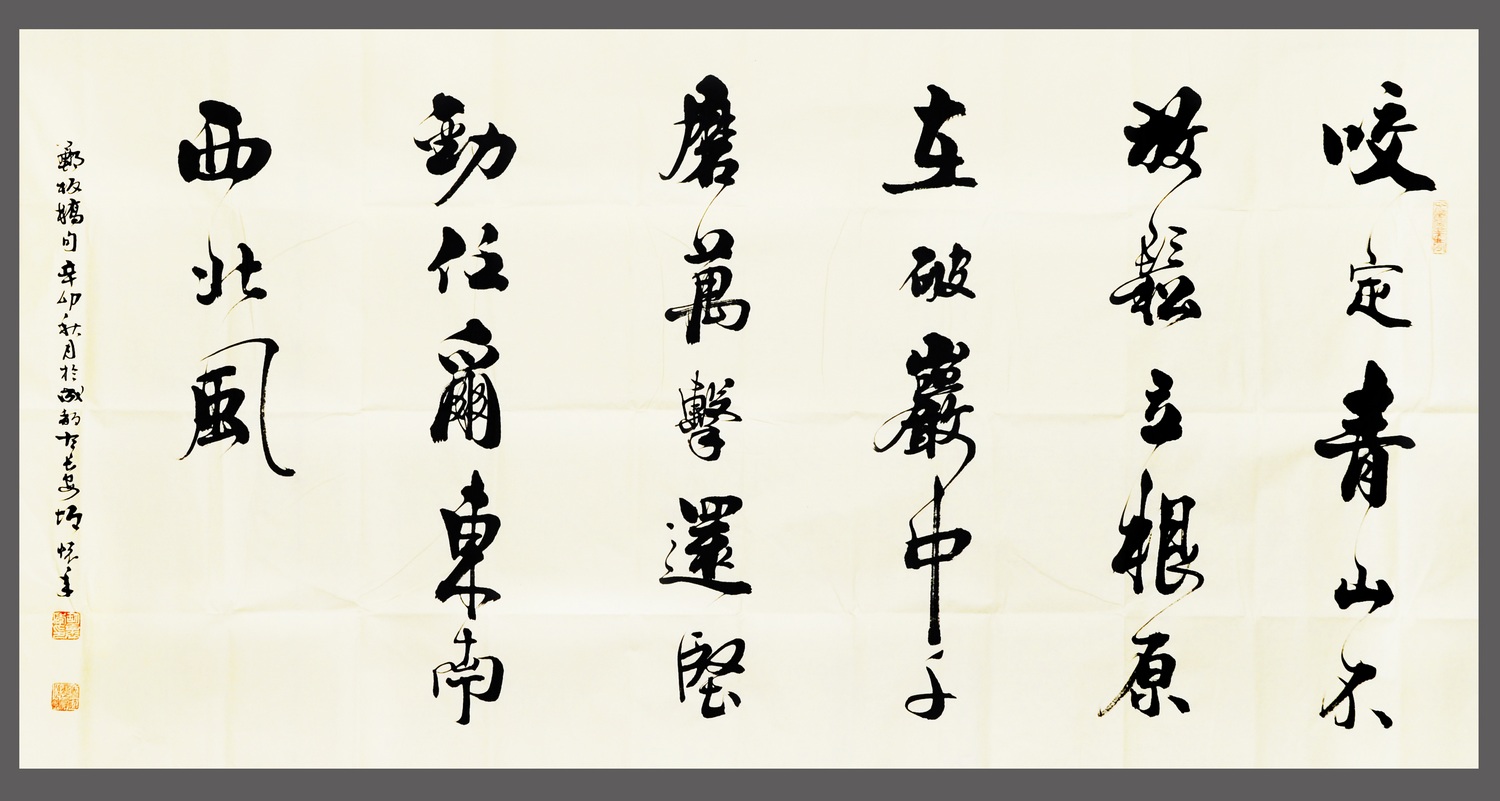 咬定青山不
放鬆立根原
在破巖中千
磨萬擊還堅
勁任爾東南
西北風
鄭板橋句辛卯秋月於成都